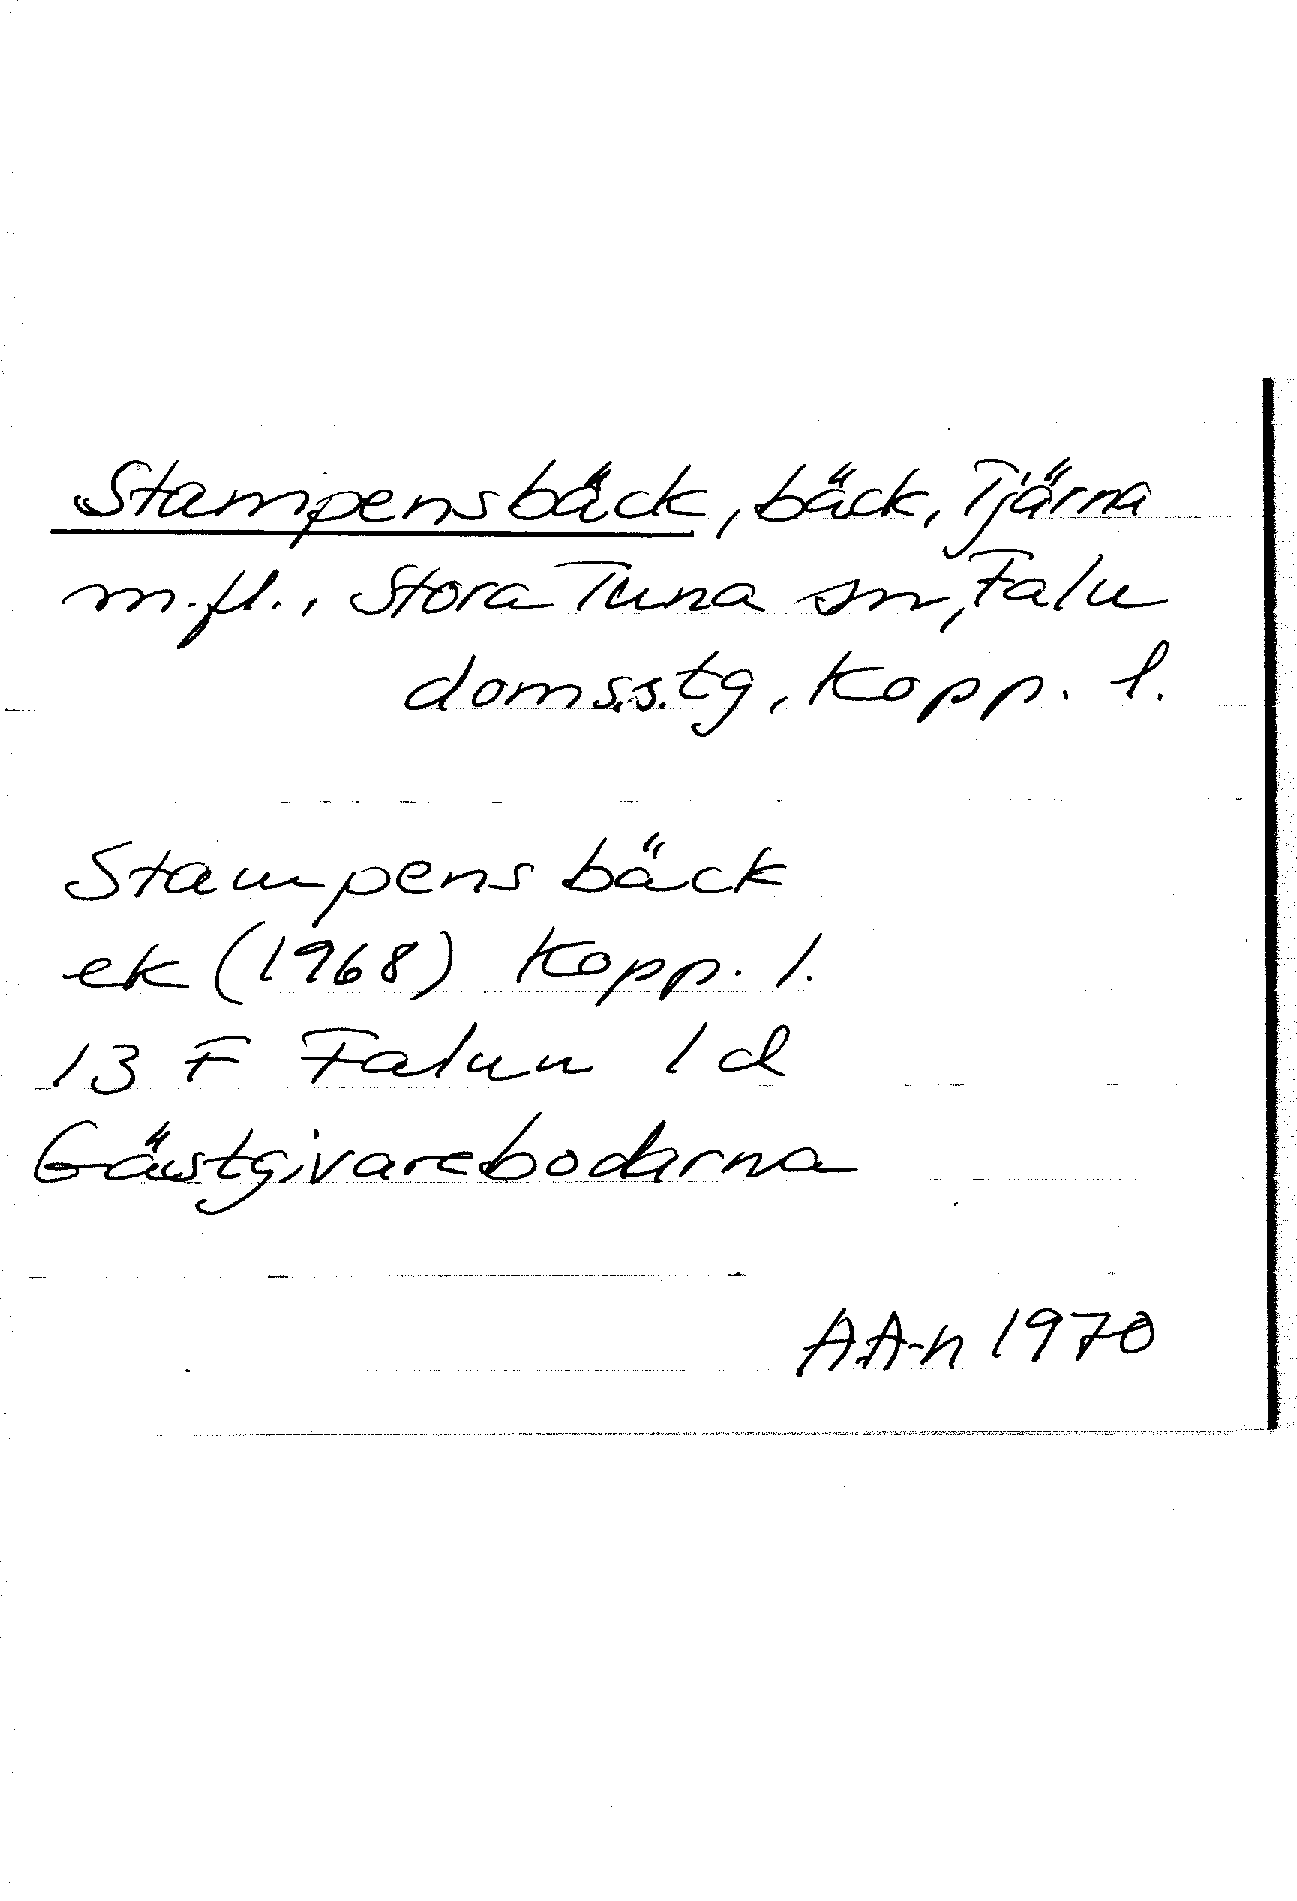 Stampensbäck, bäck, Tjärna
m.fl., Stora Tuna sn, Falu
doms.s.tg, Kopp. l.
Stampens bäck
ek (1968) Kopp. l.
13 F Falun 1 d
Gästgivarebodarna
A.A-n 1970